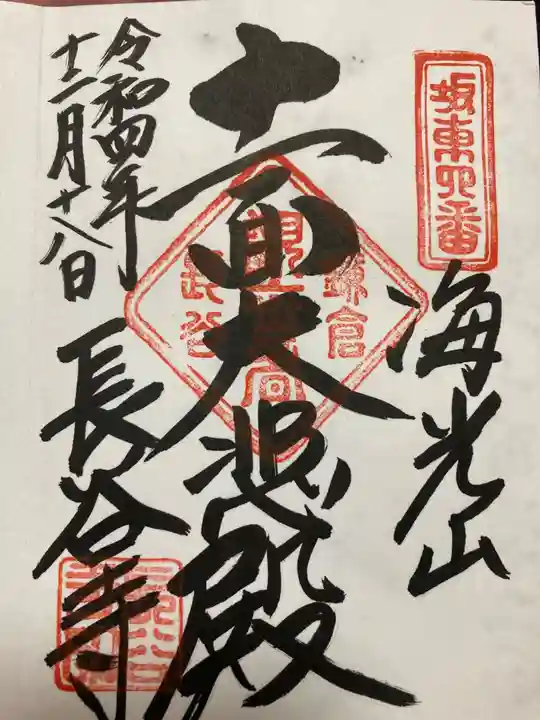 坂東四番
海光山
十一面大悲殿
鎌倉
長谷
令和四年
十二月十八日
長谷寺